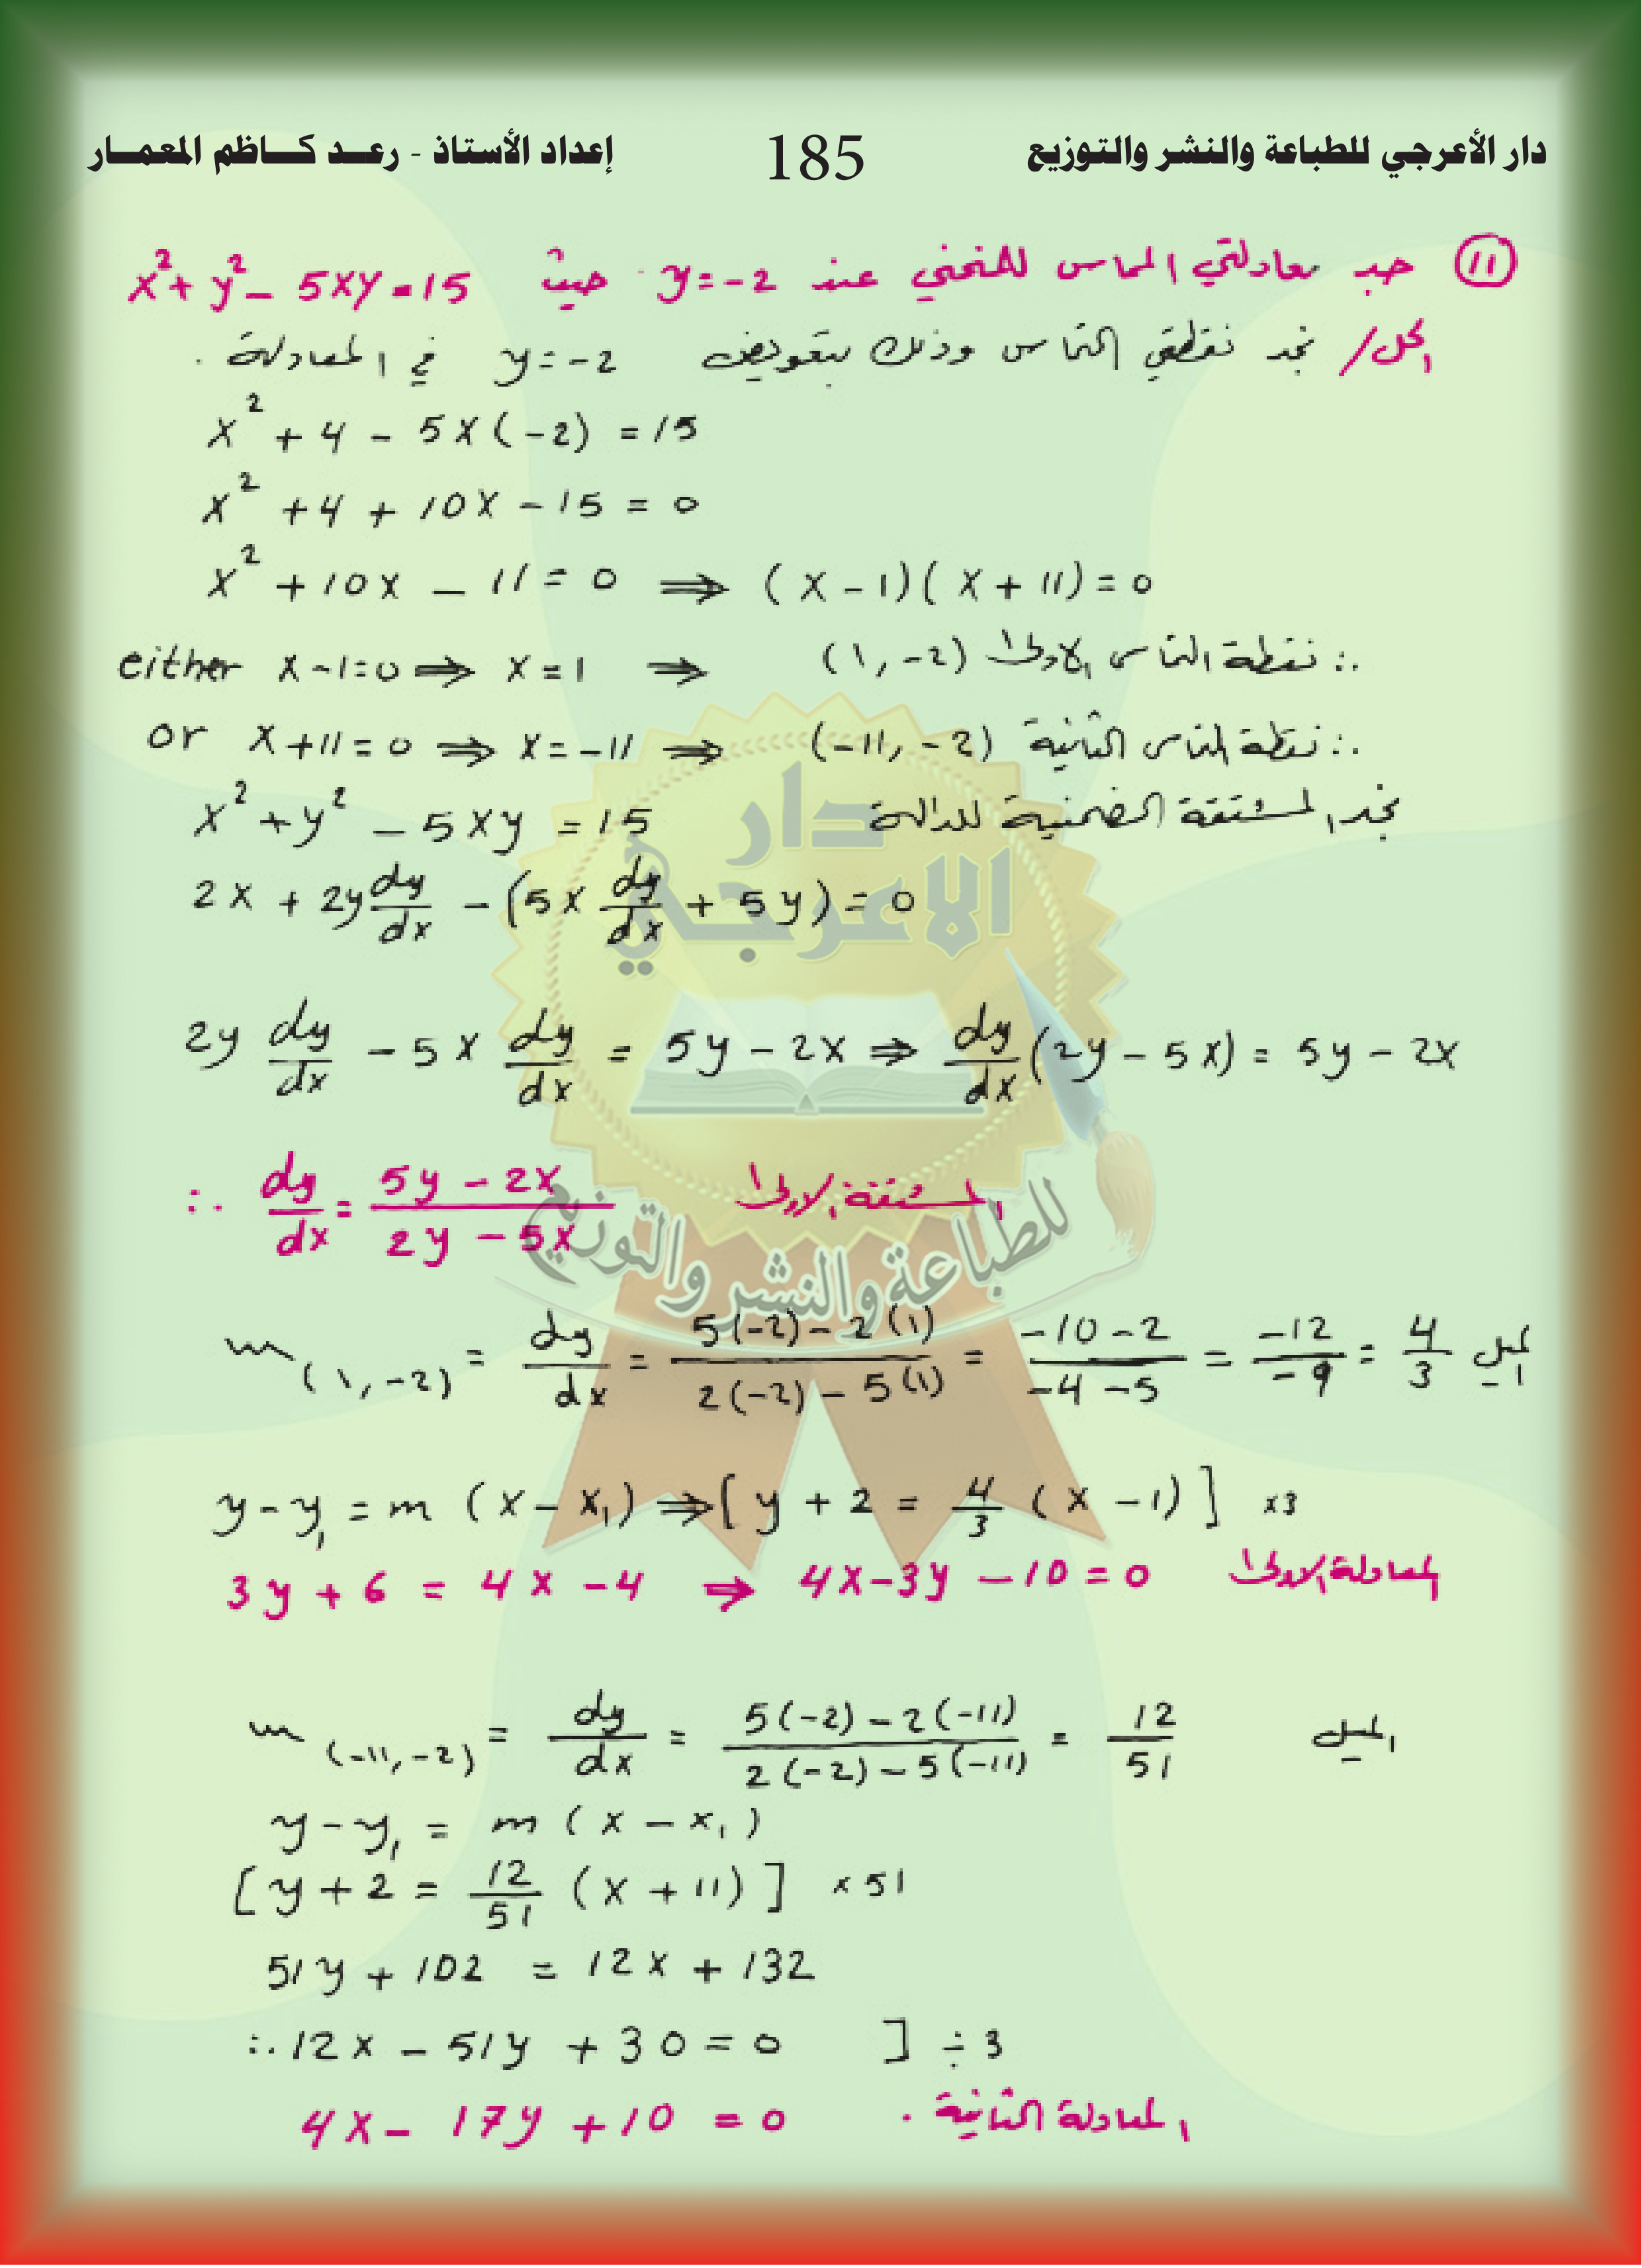 دار الأعرجي للطباعة والنشر والتوزيع 185 إعداد الأستاذ - رعـد كـاظم المعمـار
⑪ جد معادلتي المماس للمنحني عند y = -2 حيث x² + y² - 5xy = 15
الحل/ نجد نقطتي التماس وذلك بتعويض y = -2 في المعادلة .
x² + 4 - 5x(-2) = 15
x² + 4 + 10x - 15 = 0
x² + 10x - 11 = 0 ⇒ (x - 1)(x + 11) = 0
either x - 1 = 0 ⇒ x = 1 ⇒ (1, -2) ∴ نقطة التماس الاولى
or x + 11 = 0 ⇒ x = -11 ⇒ (-11, -2) ∴ نقطة التماس الثانية
x² + y² - 5xy = 15 نجد المشتقة الضمنية للدالة
2x + 2y dy/dx - (5x dy/dx + 5y) = 0
2y dy/dx - 5x dy/dx = 5y - 2x ⇒ dy/dx (2y - 5x) = 5y - 2x
∴ dy/dx = (5y - 2x)/(2y - 5x) المشتقة الاولى
m(1, -2) = dy/dx = (5(-2) - 2(1))/(2(-2) - 5(1)) = (-10 - 2)/(-4 - 5) = -12/-9 = 4/3 الميل
y - y₁ = m (x - x₁) ⇒ [y + 2 = 4/3 (x - 1)] ×3
3y + 6 = 4x - 4 ⇒ 4x - 3y - 10 = 0 المعادلة الاولى
m(-11, -2) = dy/dx = (5(-2) - 2(-11))/(2(-2) - 5(-11)) = 12/51 الميل
y - y₁ = m (x - x₁)
[y + 2 = 12/51 (x + 11)] × 51
51y + 102 = 12x + 132
∴ 12x - 51y + 30 = 0 ] ÷ 3
4x - 17y + 10 = 0 المعادلة الثانية .
دار
الاعرجي
للطباعة والنشر والتوزيع